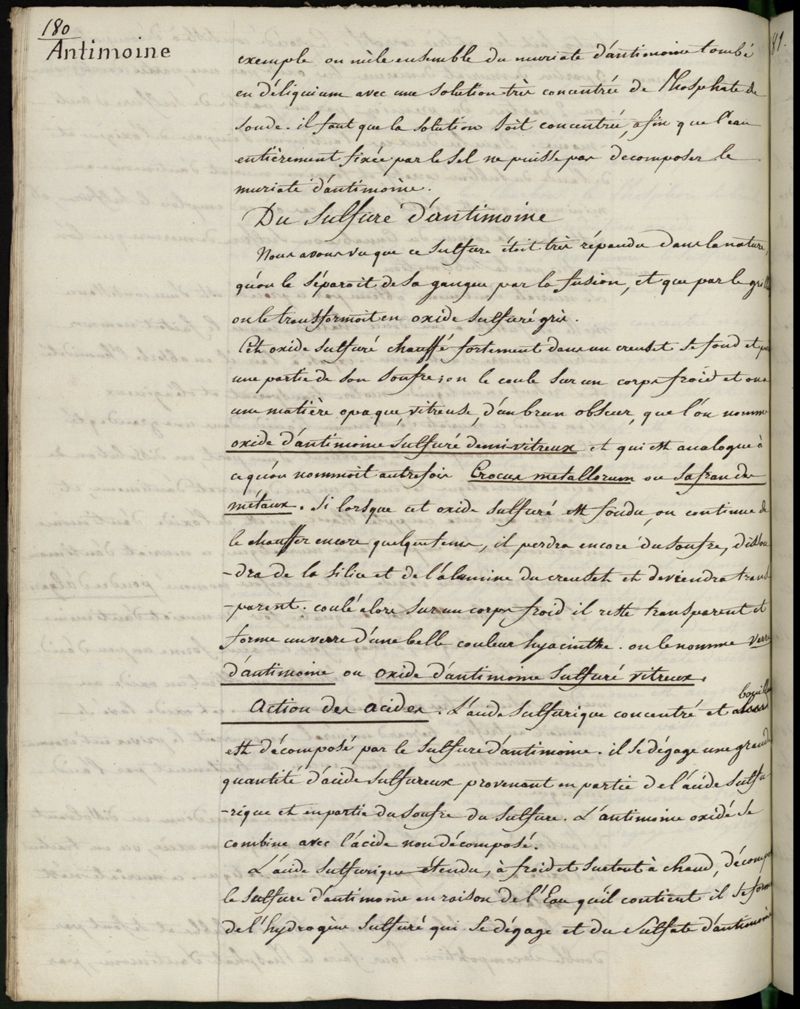 180
Antimoine
exemple on mêle ensemble du muriate d'antimoine tombé
en déliquium avec une solution très concentrée de Phosphate de
soude. il faut que la solution soit concentrée, afin que l'eau
entièrement fixée par le sel ne puisse pas decomposer le
muriate d'antimoine.
Du Sulfure d'antimoine
Nous avons vu que ce sulfure étoit très répandu dans la nature,
qu'on le séparoit de sa gangue par la fusion, et que par le
on le transformoit en oxide sulfuré gris.
Cet oxide sulfuré chauffé fortement dans un creuset se fond et
une partie de son soufre; on le coule sur un corps froid et on
une matière opaque, vitreuse, d'un brun obscur, que l'on nomme
oxide d'antimoine sulfuré demi-vitreux et qui est analogue à
ce qu'on nommoit autrefois Crocus metallorum ou safran des
métaux. Si lorsque cet oxide sulfuré est fondu, on continue de
le chauffer encore quelque tems, il perdra encore du soufre,
-dra de la silice et de l'alumine du creuset et deviendra trans
-parent. coulé alors sur un corps froid il reste transparent et
forme un verre d'une belle couleur hyacinthe. on le nomme verre
d'antimoine ou oxide d'antimoine sulfuré vitreux.
Action des acides. L'acide sulfurique concentré et
est décomposé par le sulfure d'antimoine. il se dégage une grande
quantité d'acide sulfureux provenant en partie de l'acide sulfu-
-rique et en partie du soufre du sulfure. L'antimoine oxidé se
combine avec l'acide non décomposé.
L'acide sulfurique étendu, à froid et surtout à chaud,
le sulfure d'antimoine en raison de l'Eau qu'il contient il se forme
de l'hydrogène sulfuré qui se dégage et du sulfate d'antimoine